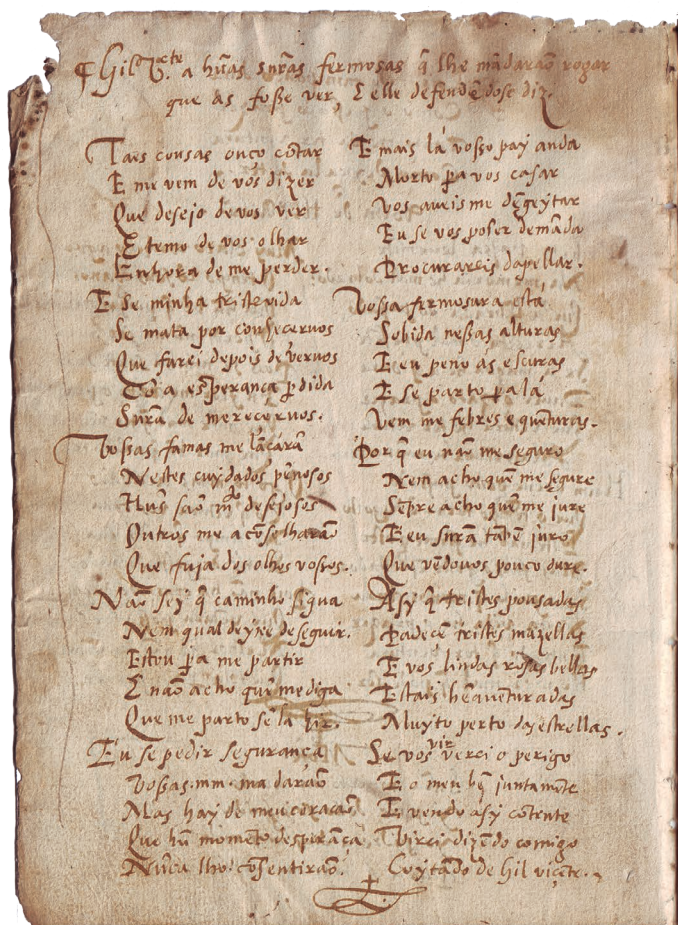 ¶ Gil Vicẽte a hũas sñras fermosas q̃ lhe mãdaraõ rogar
que as fosse ver, E elle defendẽdose diz.
Taes cousas ouço cõtar
E me vem de vos dizer
Que desejo de vos ver
E temo de vos olhar
Enhora de me perder.
E Se minha triste vida
Se mata por conhecervos
Que farei depois de vervos
Tẽ a esperança p̃dida
Sñra de merecervos.
Vossas famas me lãçarã
Nestes cuydados pẽnosos
Hũs saõ desejosos
Outros me acõselharaõ
Que fuja dos olhos vossos.
Naõ sey q̃ caminho sigua
Nem qual deyxe de seguir.
Estou p̃a me partir
E naõ acho quẽ me diga
Que me parto sẽ la hir.
Eu se pedir segurança
Vossas .mm. ma daraõ
Mas hay de meu coraçaõ
Que hũ momẽto desperãça
Nũca lho cõsentiraõ.
E mais lá vosso pay anda
Morto p̃a vos casar
Vos aveis me dẽgeytar
Eu se vos poser demãda
Procurareis dapellar.
Vossa fermosura está
Sobida nessas alturas
E eu peno ás escuras
E se parto p̃a lá
Vem me febres e quẽturas.
Por q̃ eu naõ me seguro
Nem acho quẽ me segure
Sẽpre acho quẽ me jure
E eu sñra tãbẽ juro
Que vẽdouos pouco dure.
Asy q̃ tristes pousadas
Padecẽ tristes mazellas
E vos lindas rosas bellas
Estais bẽaventuradas
Muyto perto das estrellas.
Se vos vir verei o perigo
E o meu bẽ juntamẽte
E vendo asy cõtẽte
Virei dizẽdo comigo
Coytado de Gil viçẽte.